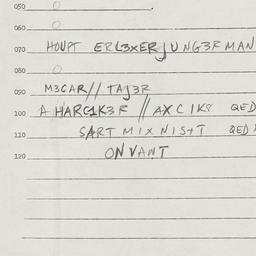 050
060
070 HOUPT ERL3XERJUNG3RMAN
080
090 M3GAR// TAJ3R
100 A HARG1K3R // AXC1K8 QED
110 SART MIXNIST QED
120 ONVANT